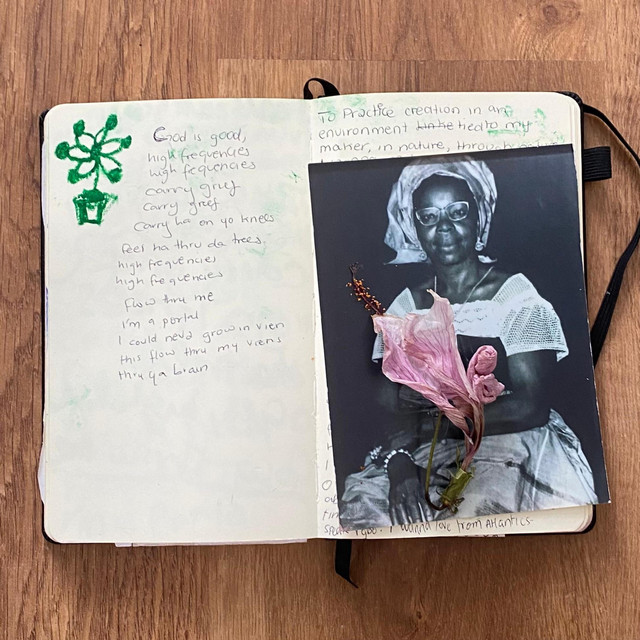 God is good,
high frequencies
high fequencies
carry grief
carry grief
Carry ha on yo knees
Feel ha thru da trees.
high frequencies
high frequencies
Flow thru me
I'm a portal
I could neva grow in vien
this flow thru my viens
thru ya brain
To Practice creation in an
environment tied to my
maker, in nature,
I wanna love from Atlantics.